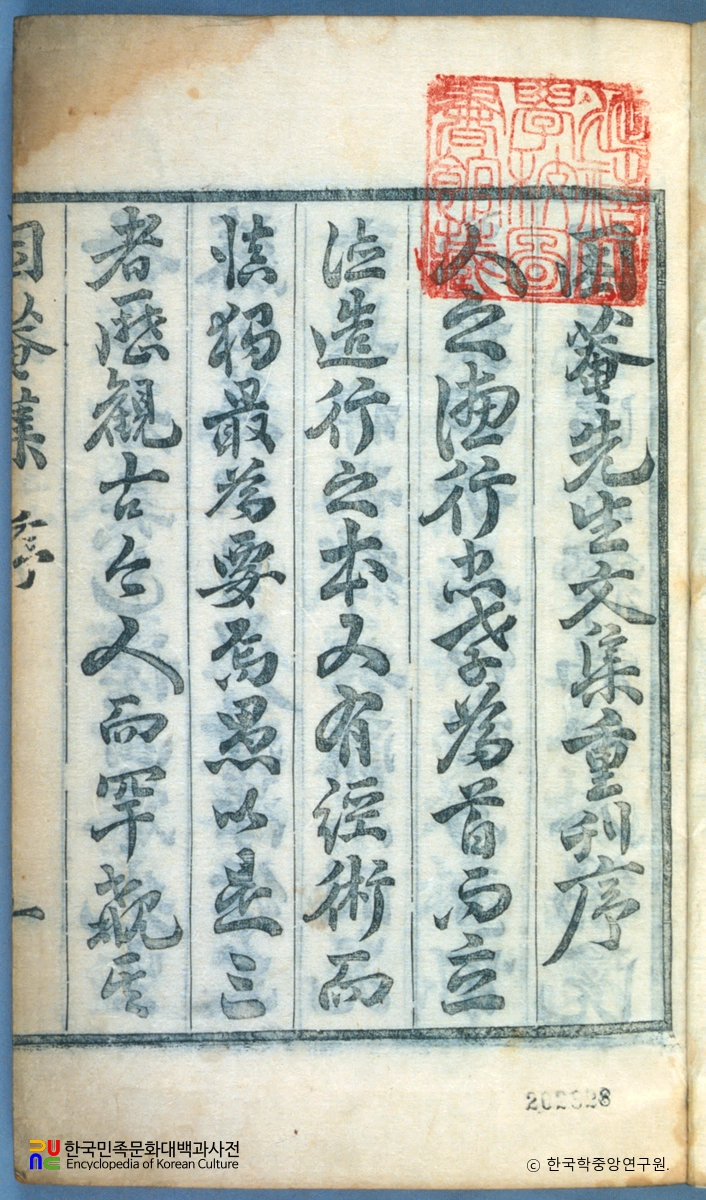 菴先生文集重刊序
人之德行忠孝爲首而立
造行之本又有經術而
愼獨最爲要焉愚以是三
者歷觀古今人而罕覯其
菴集 序 一
學校圖
書館藏
한국민족문화대백과사전
Encyclopedia of Korean Culture
© 한국학중앙연구원.